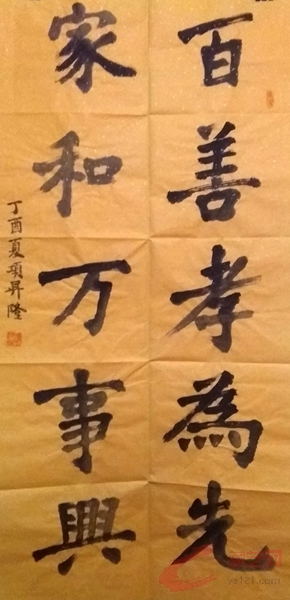 百善孝為先
家和万事興
丁酉夏項昇隆